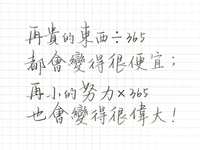 再貴的東西÷365
都會變得很便宜;
再小的努力×365
也會變得很偉大!